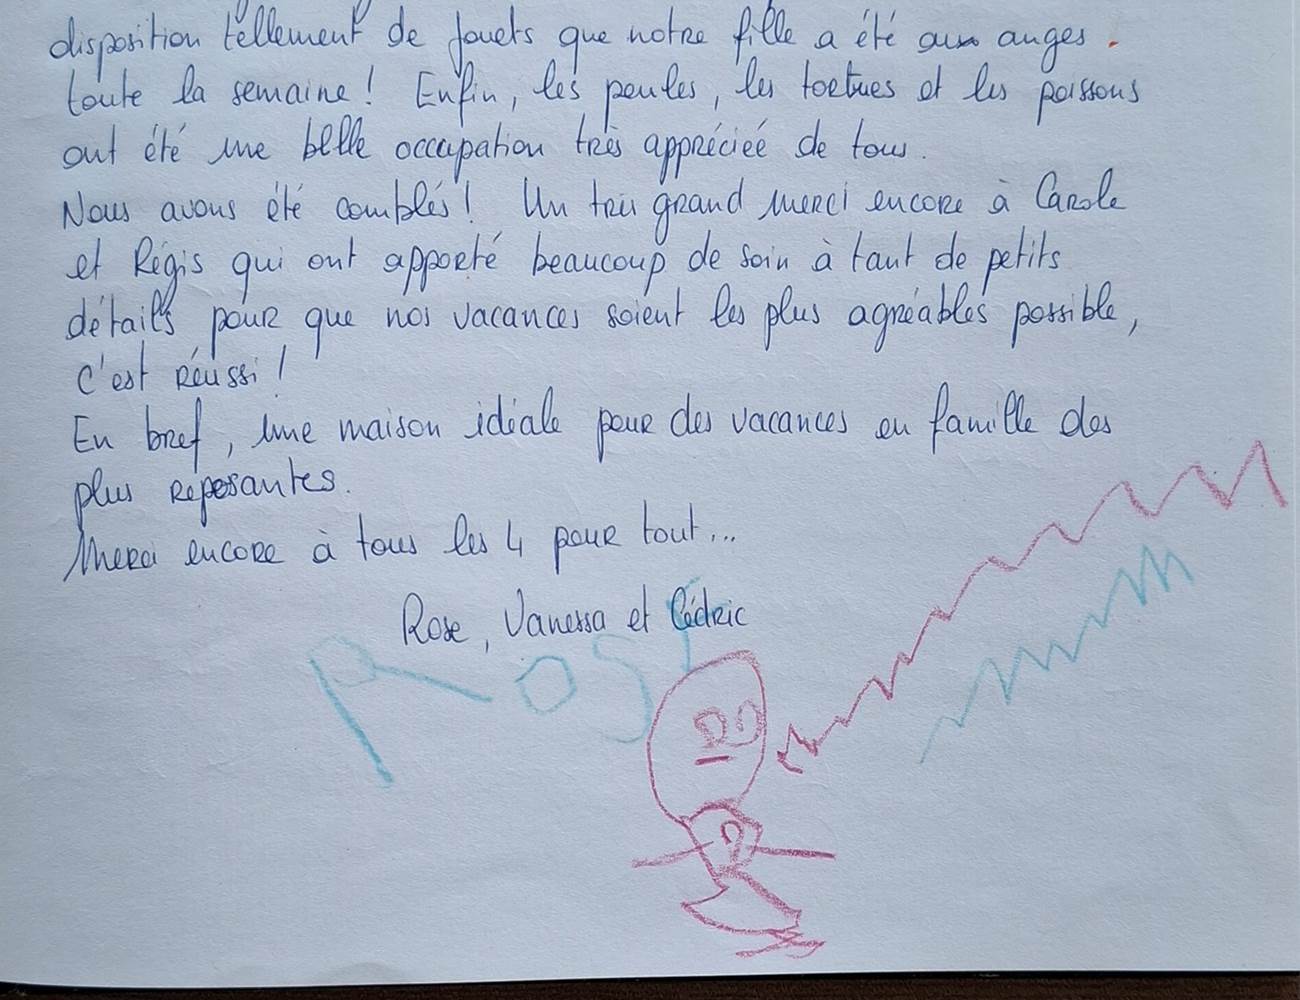 disposition tellement de jouets que notre fille a été aux anges.
toute la semaine! Enfin, les poules, les tortues et les poissons
ont été une belle occupation très appréciée de tous.
Nous avons été comblés! Un très grand merci encore à Carole
et Régis qui ont apporté beaucoup de soin à tant de petits
détails pour que nos vacances soient les plus agréables possible,
c'est réussi!
En bref, une maison idéale pour des vacances en famille des
plus reposantes.
Merci encore à tous les 4 pour tout...
Rose, Vanessa et Cédric
ROSE